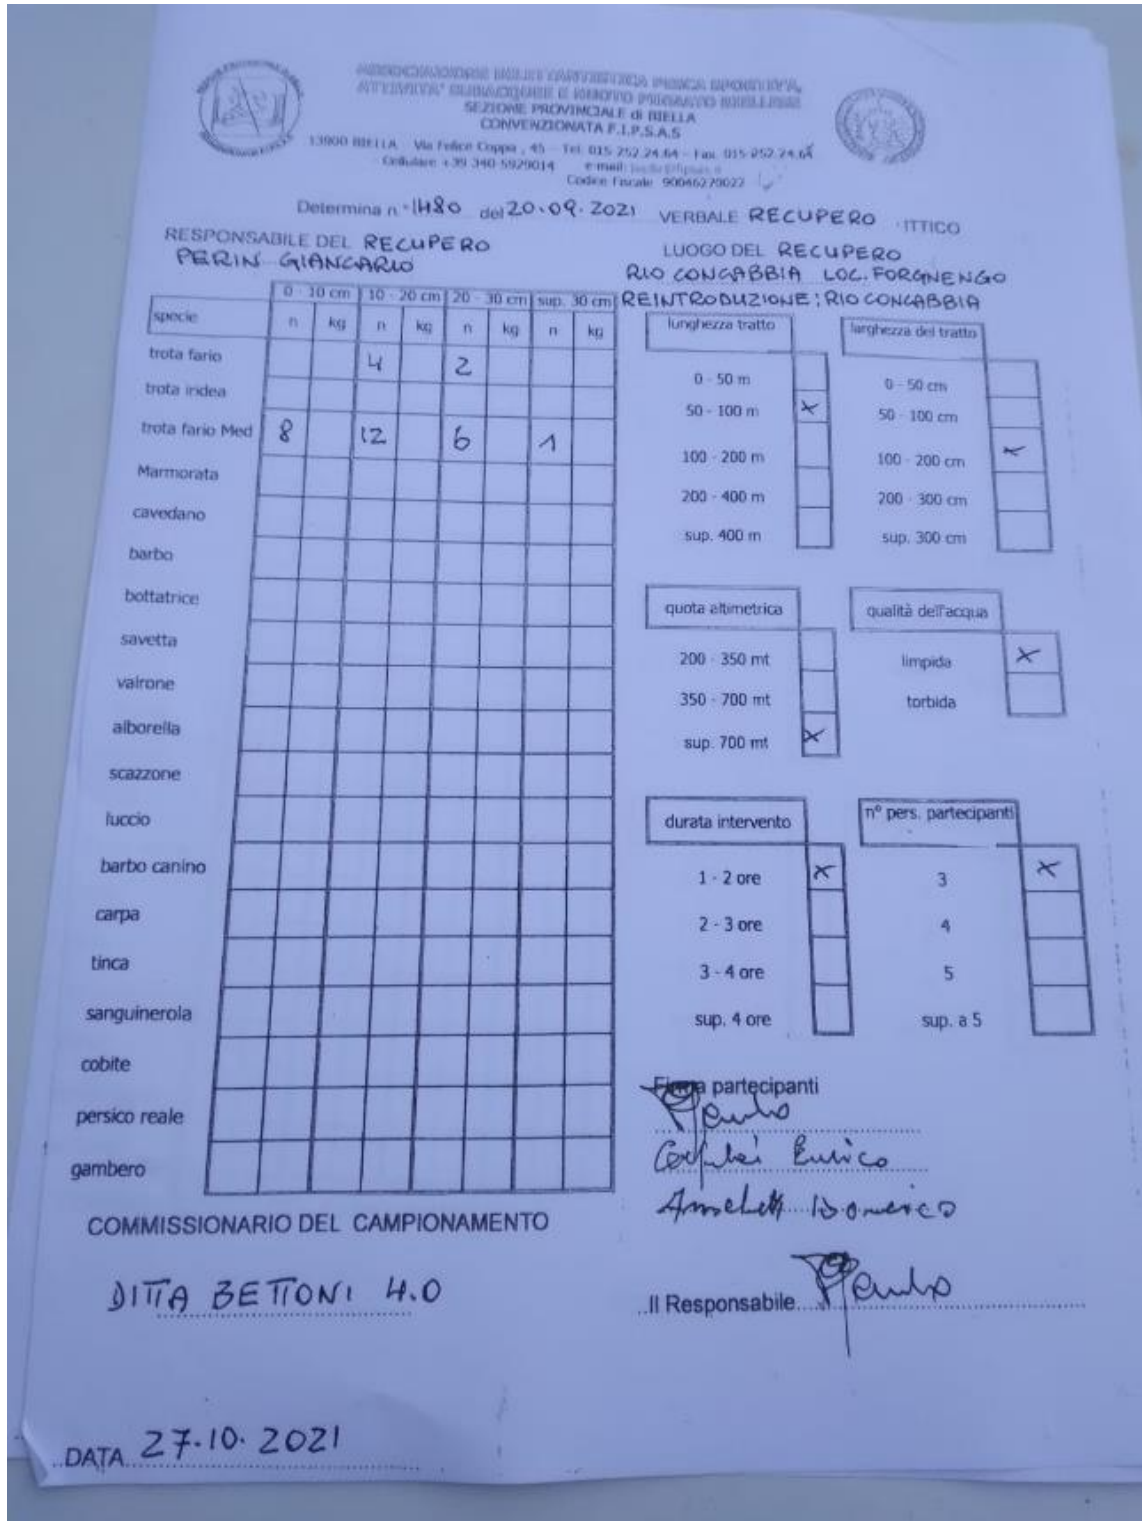 ASSOCIAZIONE DILETTANTISTICA PESCA SPORTIVA,
ATTIVITA' SUBACQUEE E NUOTO PINNATO BIELLESE
SEZIONE PROVINCIALE di BIELLA
CONVENZIONATA F.I.P.S.A.S
13900 BIELLA Via Felice Coppa , 45 - Tel. 015 252.24.64 - Fax. 015-252.24.64
Cellulare +39 340 5929014 e-mail:
Codice Fiscale 90046270022
Determina n° 1480 del 20.09.2021 VERBALE RECUPERO ITTICO
RESPONSABILE DEL RECUPERO
PERIN GIANCARLO
LUOGO DEL RECUPERO
RIO CONCABBIA LOC. FORGNENGO
REINTRODUZIONE: RIO CONCABBIA
0 - 10 cm 10 - 20 cm 20 - 30 cm sup. 30 cm
specie n kg n kg n kg n kg
trota fario 4 2
trota iridea
trota fario Med 8 12 6 1
Marmorata
cavedano
barbo
bottatrice
savetta
vairone
alborella
scazzone
luccio
barbo canino
carpa
tinca
sanguinerola
cobite
persico reale
gambero
lunghezza tratto
0 - 50 m
50 - 100 m x
100 - 200 m
200 - 400 m
sup. 400 m
larghezza del tratto
0 - 50 cm
50 - 100 cm
100 - 200 cm x
200 - 300 cm
sup. 300 cm
quota altimetrica
200 - 350 mt
350 - 700 mt
sup. 700 mt x
qualità dell'acqua
limpida x
torbida
durata intervento
1 - 2 ore x
2 - 3 ore
3 - 4 ore
sup. 4 ore
n° pers. partecipanti
3 x
4
5
sup. a 5
Firma partecipanti
Enrico
Domenico
COMMISSIONARIO DEL CAMPIONAMENTO
DITTA BETTONI 4.0
..Il Responsabile
DATA 27.10.2021